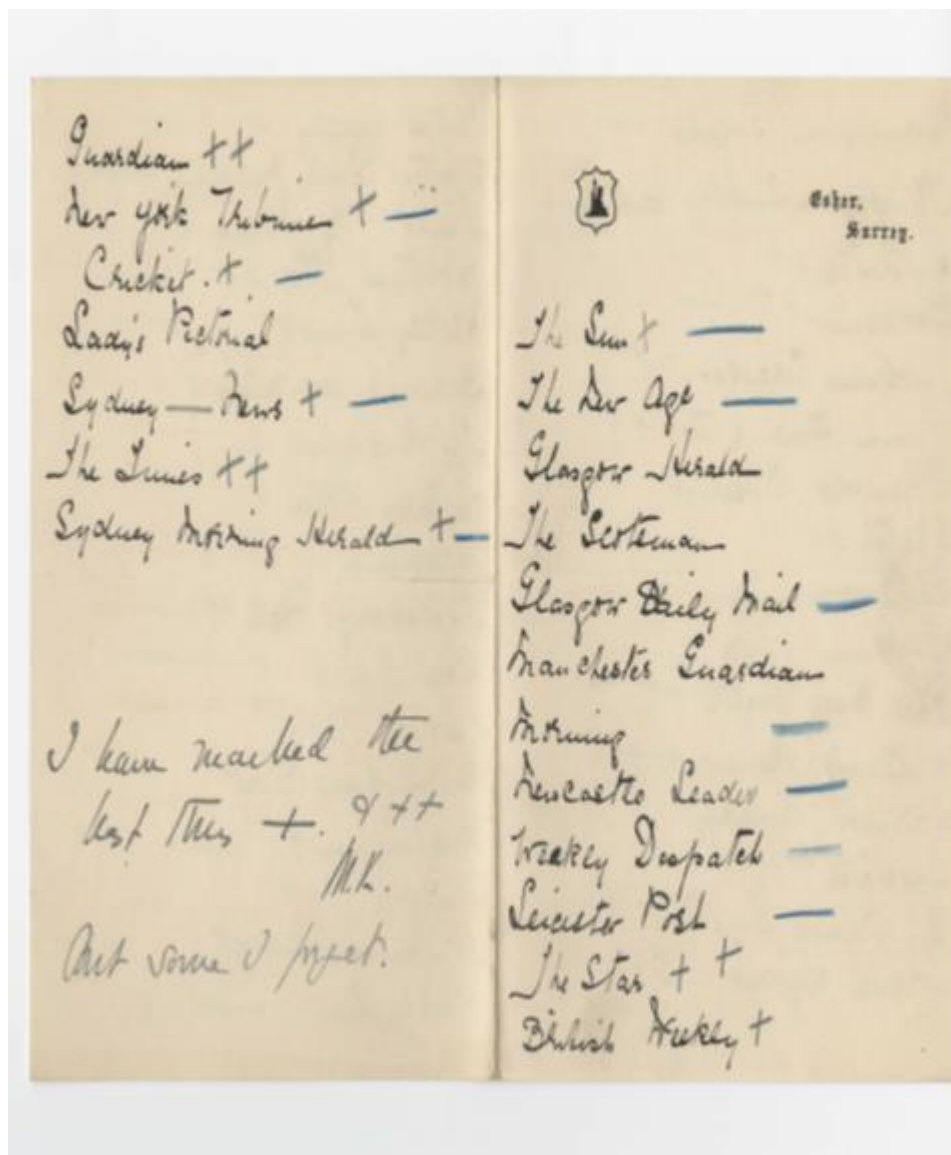 Guardian ++
New York Tribune + —
Cricket. + —
Lady's Pictorial
Sydney — News + —
The Times ++
Sydney Morning Herald + —
I have marked the
best thus +. & ++
M.K.
But some I forget.
Esher,
Surrey.
The Sun + —
The New Age —
Glasgow Herald
The Scotsman
Glasgow Daily Mail —
Manchester Guardian
Morning —
Newcastle Leader —
Weekly Dispatch —
Leicester Post —
The Star + +
British Weekly +